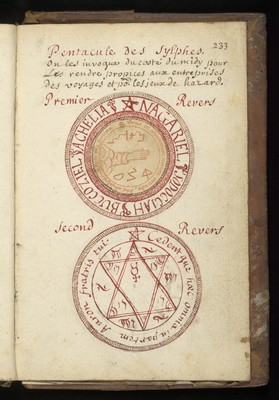 233
Pentacule des Sylphes.
On les invoque du costé du midy pour
Les rendre propices aux entreprises
des voyages et pour les jeux de hazard.
Premier Revers
NAGARIEL
BUCCOZIEL ACHELIA
Second Revers
Cedent quæ hæc omnia in partem
Aaron fratris tui.